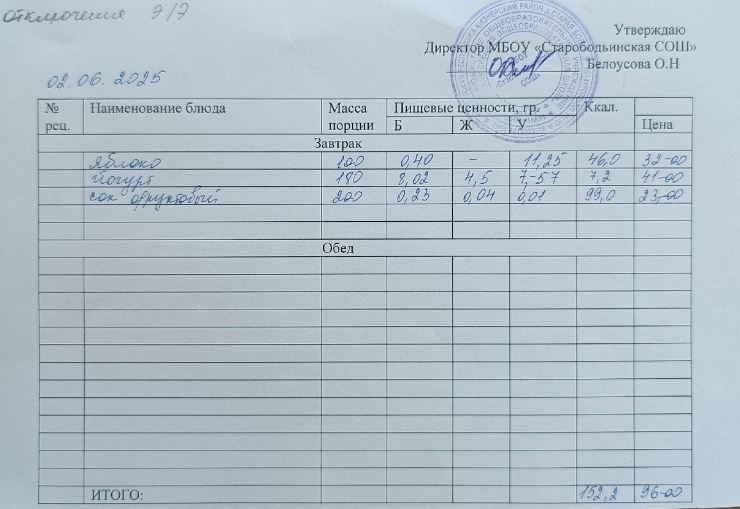 отключение э/э
Утверждаю
Директор МБОУ «Старободьинская СОШ»
Белоусова О.Н
02.06.2025
№ рец. Наименование блюда Масса порции Пищевые ценности, гр. Ккал. Цена
Б Ж У
Завтрак
Яблоко 100 0,40 - 11,25 46,0 32-00
Йогурт 180 8,02 4,5 7,-57 7,2 41-00
сок фруктовый 200 0,23 0,04 0,01 99,0 23,-00
Обед
ИТОГО: 152,2 96-00